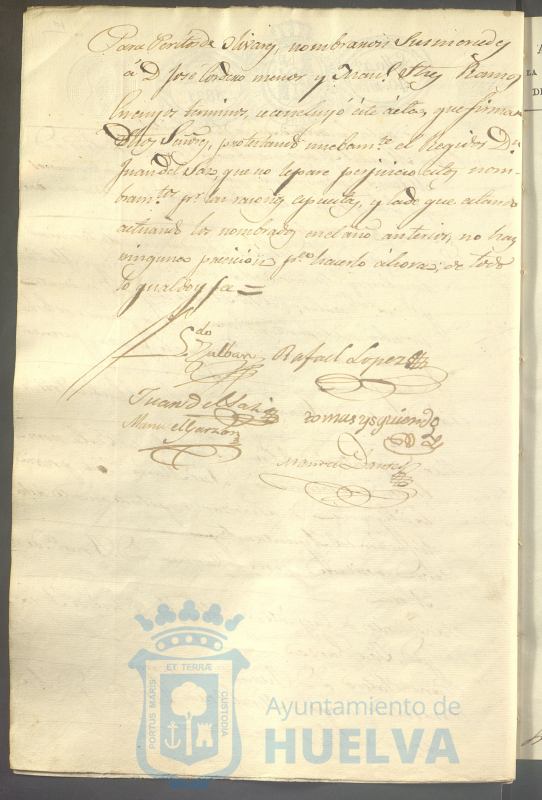 Para Peritos de Olivares, nombraron Sus mercedes
á D. José Cordero menor y Juan Ramos
En cuyos terminos, se concluyó este acta, que firman
Dhos Señores, protestando el Regidor Dn
Juan del Saz que no le pare perjuicio estos nom-
bram.tos pr. las razones espuestas, y la de que estando
actuando los nombrados en el año anterior, no hay
ninguna precision pa. hacerlo ahora; de todo
lo qual doy fe =
Ldo Zalban Rafael Lopez
Juan del Saz
Manuel Garzon tomas ysquierdo
PORTUS MARIS ET TERRÆ CUSTODIA
Ayuntamiento de
HUELVA
LA
DE